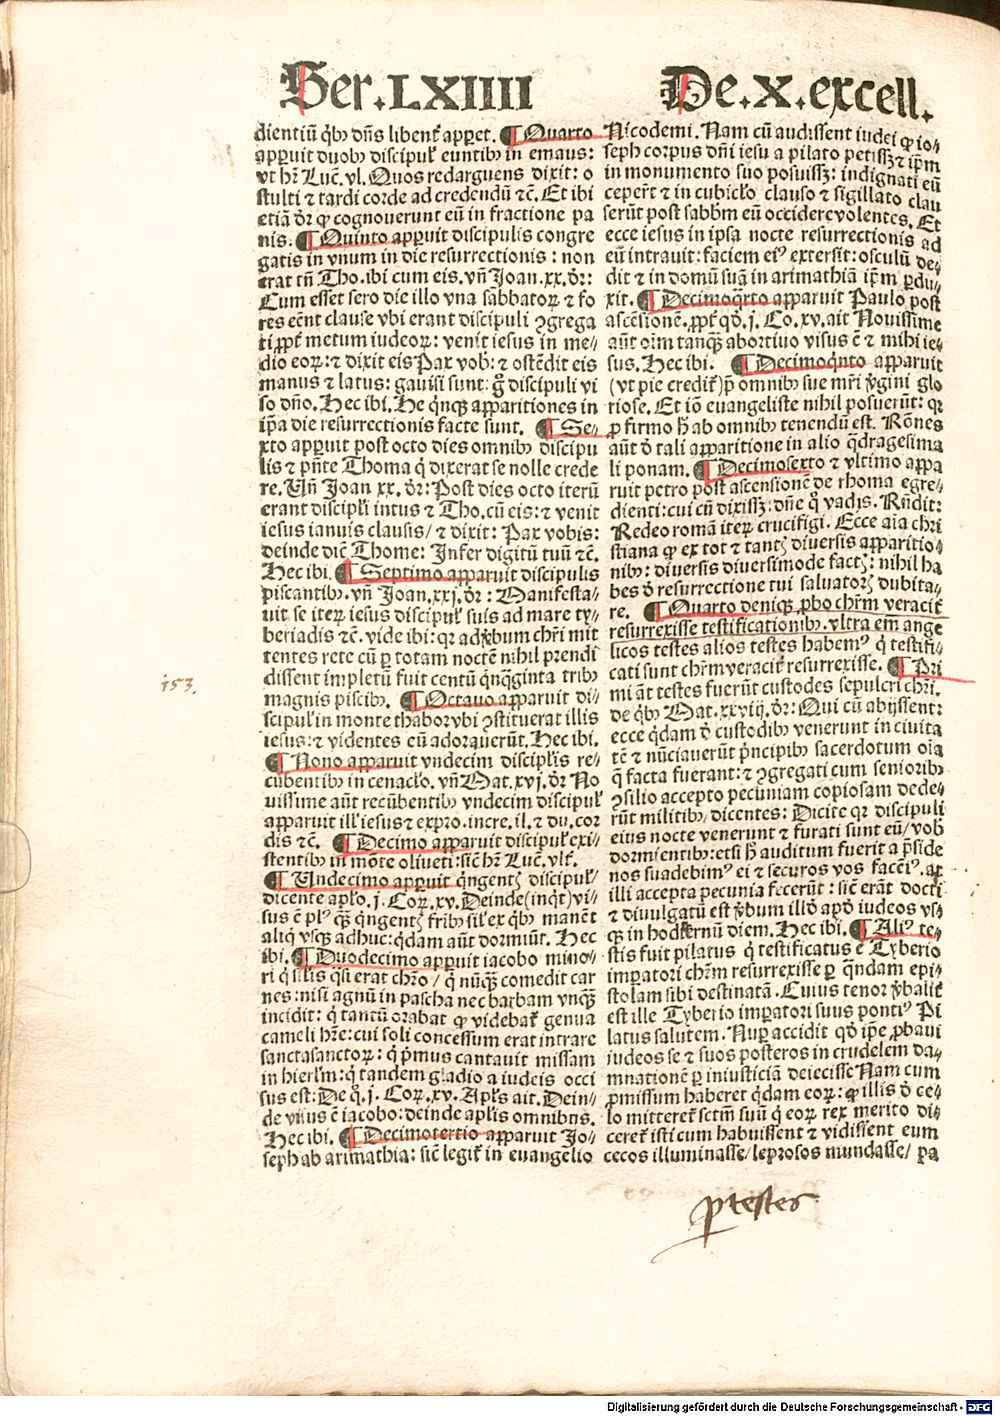 Ser. LXIIII
De. X. excell.
dientiū q̇bꝰ dn̄s libent̄ apꝑet. ¶ Quarto
apꝑuit duobꝰ discipuł euntibꝰ in emaus:
vt hr̄ Luc̄. vl. Quos redarguens dixit: o
stulti ⁊ tardi corde ad credendū ⁊c̄. Et ibi
etiā dr̄ ꝙ cognouerunt eū in fractione pa
nis. ¶ Quinto apꝑuit discipulis congre
gatis in vnum in die resurrectionis: non
erat tn̄ Tho. ibi cum eis. vn̄ Joan. xx. dr̄:
Cum esset sero die illo vna sabbatoꝝ ⁊ fo
res eēnt clause vbi erant discipuli ꝯgrega
ti ꝓpt̄ metum iudeoꝝ: venit iesus in me⸗
dio eoꝝ: ⁊ dixit eis Pax vob̄: ⁊ ostēdit eis
manus ⁊ latus: gauisi sunt: gͦ discipuli vi
so dn̄o. Hec ibi. He q̇nqꝫ apparitiones in
ip̄a die resurrectionis facte sunt. ¶ Se⸗
xto apꝑuit post octo dies omnibꝰ discipu
lis ⁊ pn̄te Thoma q̇ dixerat se nolle crede
re. Vn̄ Joan xx. dr̄: Post dies octo iterū
erant discipłi intus ⁊ Tho. cū eis: ⁊ venit
iesus ianuis clausis/ ⁊ dixit: Pax vobis:
deinde dic̄ Thome: Infer digitū tuū ⁊c̄.
Hec ibi. ¶ Septimo apꝑuit discipulis
piscantibꝰ. vn̄ Joan. xxj. dr̄: Manifesta⸗
uit se iteꝝ iesus discipuł suis ad mare ty⸗
beriadis ⁊c̄. vide ibi: qꝛ ad v̇bum chr̄i mit
tentes rete cū ꝑ totam noctē nihil prendi
dissent impletū fuit centū q̇nq̄ginta tribꝰ
magnis piscibꝰ. ¶ Octauo apꝑuit di⸗
scipuł in monte thabor vbi ꝯstituerat illis
iesus: ⁊ videntes eū adorauerūt. Hec ibi.
¶ Nono apparuit vndecim disciplis re⸗
cūbentibꝰ in cenaclo. vn̄ Mat. xvj. dr̄ No
uissime aūt recūbentibꝰ vndecim discipuł
apparuit ill̄ iesus ⁊ expro. incre. il. ⁊ du. cor
dis ⁊c̄. ¶ Decimo apꝑuit discipuł exi⸗
stentibꝰ in mōte oliueti: sic̄ hr̄ Luc̄. vlt̄.
¶ Vndecimo apꝑuit q̇ngentꝭ discipuł/
dicente apło. j. Coꝝ. xv. Deinde (inq̇t) vi⸗
sus ē plꝰ q̄ꝫ q̇ngentꝭ frībꝰ sił ex q̇bꝰ manēt
aliq̇ vsqꝫ adhuc: q̇dam aūt dormiūt. Hec
ibi. ¶ Duodecimo apꝑuit iacobo mino⸗
ri q̇ silis q̄si erat chr̄o/ q̇ nūqꝫ comedit car
nes: nisi agnū in pascha nec barbam vnqꝫ
incidit: q̇ tantū orabat ꝙ videbat̄ genua
cameli hr̄e: cui soli concessum erat intrare
sanctasanctoꝝ: q̇ p̄mus cantauit missam
in hierłm: q̇ tandem gladio a iudeis occi
sus est: De qͦ. j. Coꝝ. xv. Apłs ait. Dein⸗
de visus ē iacobo: deinde apłis omnibus.
Hec ibi. ¶ Decimotertio apparuit Jo⸗
seph ab arimathia: sic̄ legit̄ in euangelio
Nicodemi. Nam cū audissent iudei ꝙ io⸗
seph corpus dn̄i iesu a pilato petissꝫ ⁊ ip̄m
in monumento suo posuissꝫ: indignati eū
ceper̄t ⁊ in cubicło clauso ⁊ sigillato clau
serūt post sabbm̄ eū occidere volentes. Et
ecce iesus in ipsa nocte resurrectionis ad
eū intrauit: faciem eiꝰ extersit: osculū de⸗
dit ⁊ in domū suā in arimathiā ip̄m ꝑdu⸗
xit. ¶ Decimoq̄rto apparuit Paulo post
ascēsionē. ꝓpt̄ qd̄. j. Co. xv. ait Nouissime
aūt oīm tanqꝫ abortiuo visus ē ⁊ mihi ie⸗
sus. Hec ibi. ¶ Decimoq̇nto apparuit
(vt pie credit̄) p̄ omnibꝰ sue mr̄i v̇gini glo
riose. Et iō euangeliste nihil posuerūt: qꝛ
ꝓ firmo h̄ ab omnibꝰ tenendū est. Rōnes
aūt d̄ tali apparitione in alio q̄dragesima
li ponam. ¶ Decimosexto ⁊ vltimo appa
ruit petro post ascensionē de rhoma egre⸗
dienti: cui cū dixissꝫ: dn̄e qͦ vadis. Rn̄dit:
Redeo romā iteꝝ crucifigi. Ecce aīa chri
stiana ꝙ ex tot ⁊ tantꝭ diuersis apparitio⸗
nibꝰ: diuersis diuersimode factꝭ: nihil ha
bes d̄ resurrectione tui saluatorꝭ dubita⸗
re. ¶ Quarto deniqꝫ ꝓbo chr̄m veracit̄
resurrexisse testificationibꝰ. vltra em̄ ange
licos testes alios testes habemꝰ q̇ testifi⸗
cati sunt chr̄m veracit̄ resurrexisse. ¶ Pri
mi āt testes fuerūt custodes sepulcri chr̄i.
de q̇bꝰ Mat. xxviij. dr̄: Qui cū abijssent:
ecce q̇dam d̄ custodibꝰ venerunt in ciuita
tē ⁊ nūciauerūt p̄ncipibꝰ sacerdotum oīa
q̄ facta fuerant: ⁊ ꝯgregati cum senioribꝰ
ꝯsilio accepto pecuniam copiosam dede⸗
rūt militibꝰ, dicentes: Dicite qꝛ discipuli
eius nocte venerunt ⁊ furati sunt eū/ vob̄
dormientibꝰ: etsi h̄ auditum fuerit a p̄side
nos suadebimꝰ ei ⁊ securos vos faceiꝰ. at
illi accepta pecunia fecerūt: sic̄ erāt docti
⁊ diuulgatū est v̇bum illd̄ apd̄ iudeos vs⸗
qꝫ in hodiernū diem. Hec ibi. ¶ Aliꝰ te⸗
stis fuit pilatus q̇ testificatus ē Tyberio
imꝑatori chr̄m resurrexisse ꝑ q̄ndam epi⸗
stolam sibi destinatā. Cuius tenor v̇balit̄
est ille Tyberio imꝑatori suus pontiꝰ Pi
latus salutem. Nuꝑ accidit qd̄ ip̄e ꝓbaui
iudeos se ⁊ suos posteros in crudelem da⸗
mnationē ꝑ iniusticiā deiecisse Nam cum
ꝓmissum haberet q̇dam eoꝝ: ꝙ illis d̄ ce⸗
lo mitteret̄ sctm̄ suū q̇ eoꝝ rex merito di⸗
ceret̄ isti cum habuissent ⁊ vidissent eum
cecos illuminasse/ leprosos mundasse/ pa
153.
ꝑ testes
Digitalisierung gefördert durch die Deutsche Forschungsgemeinschaft - DFG